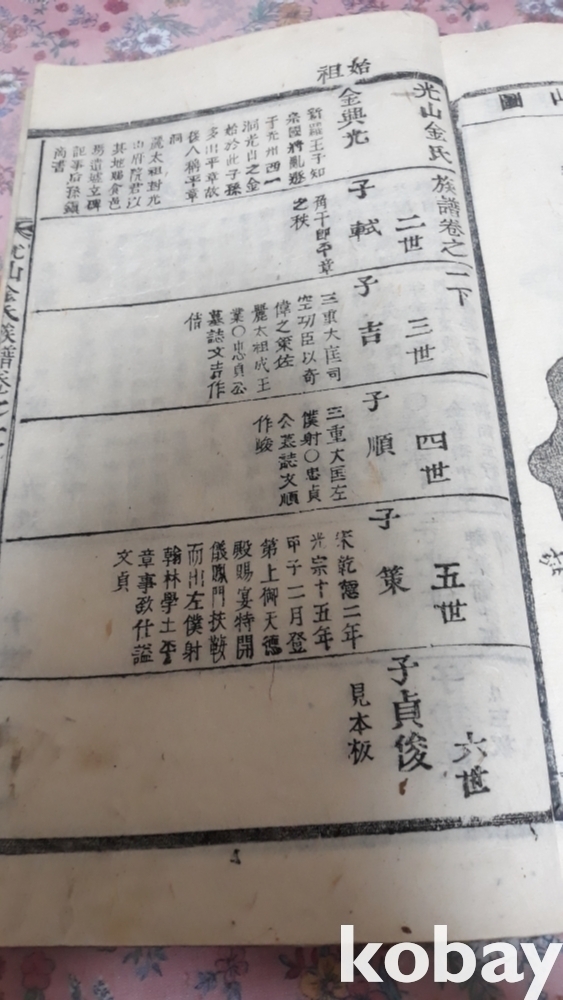 光山金氏族譜卷之一下
始祖
金興光
新羅王子知
宗國將亂遯
于光州西一
洞光自之金
始於此子孫
多出平章故
後八稱平章
洞
麗太祖封光
山府院君以
其地賜食邑
尚書
二世
子軾
角干郎平章
之秩
三世
子吉
三重大匡司
空功臣以奇
偉之策佐
麗太祖成王
業○忠貞公
墓誌文吉作
佶
四世
子順
三重大匡左
僕射○忠貞
公墓誌文順
作峻
五世
子策
宋乾德二年
光宗十五年
甲子二月登
第上御天德
殿賜宴特開
儀鳳門扶鞍
而出左僕射
翰林學士平
章事致仕謚
文貞
六世
子貞俊
見本板
光山金氏族譜卷之一
山圖
kobay